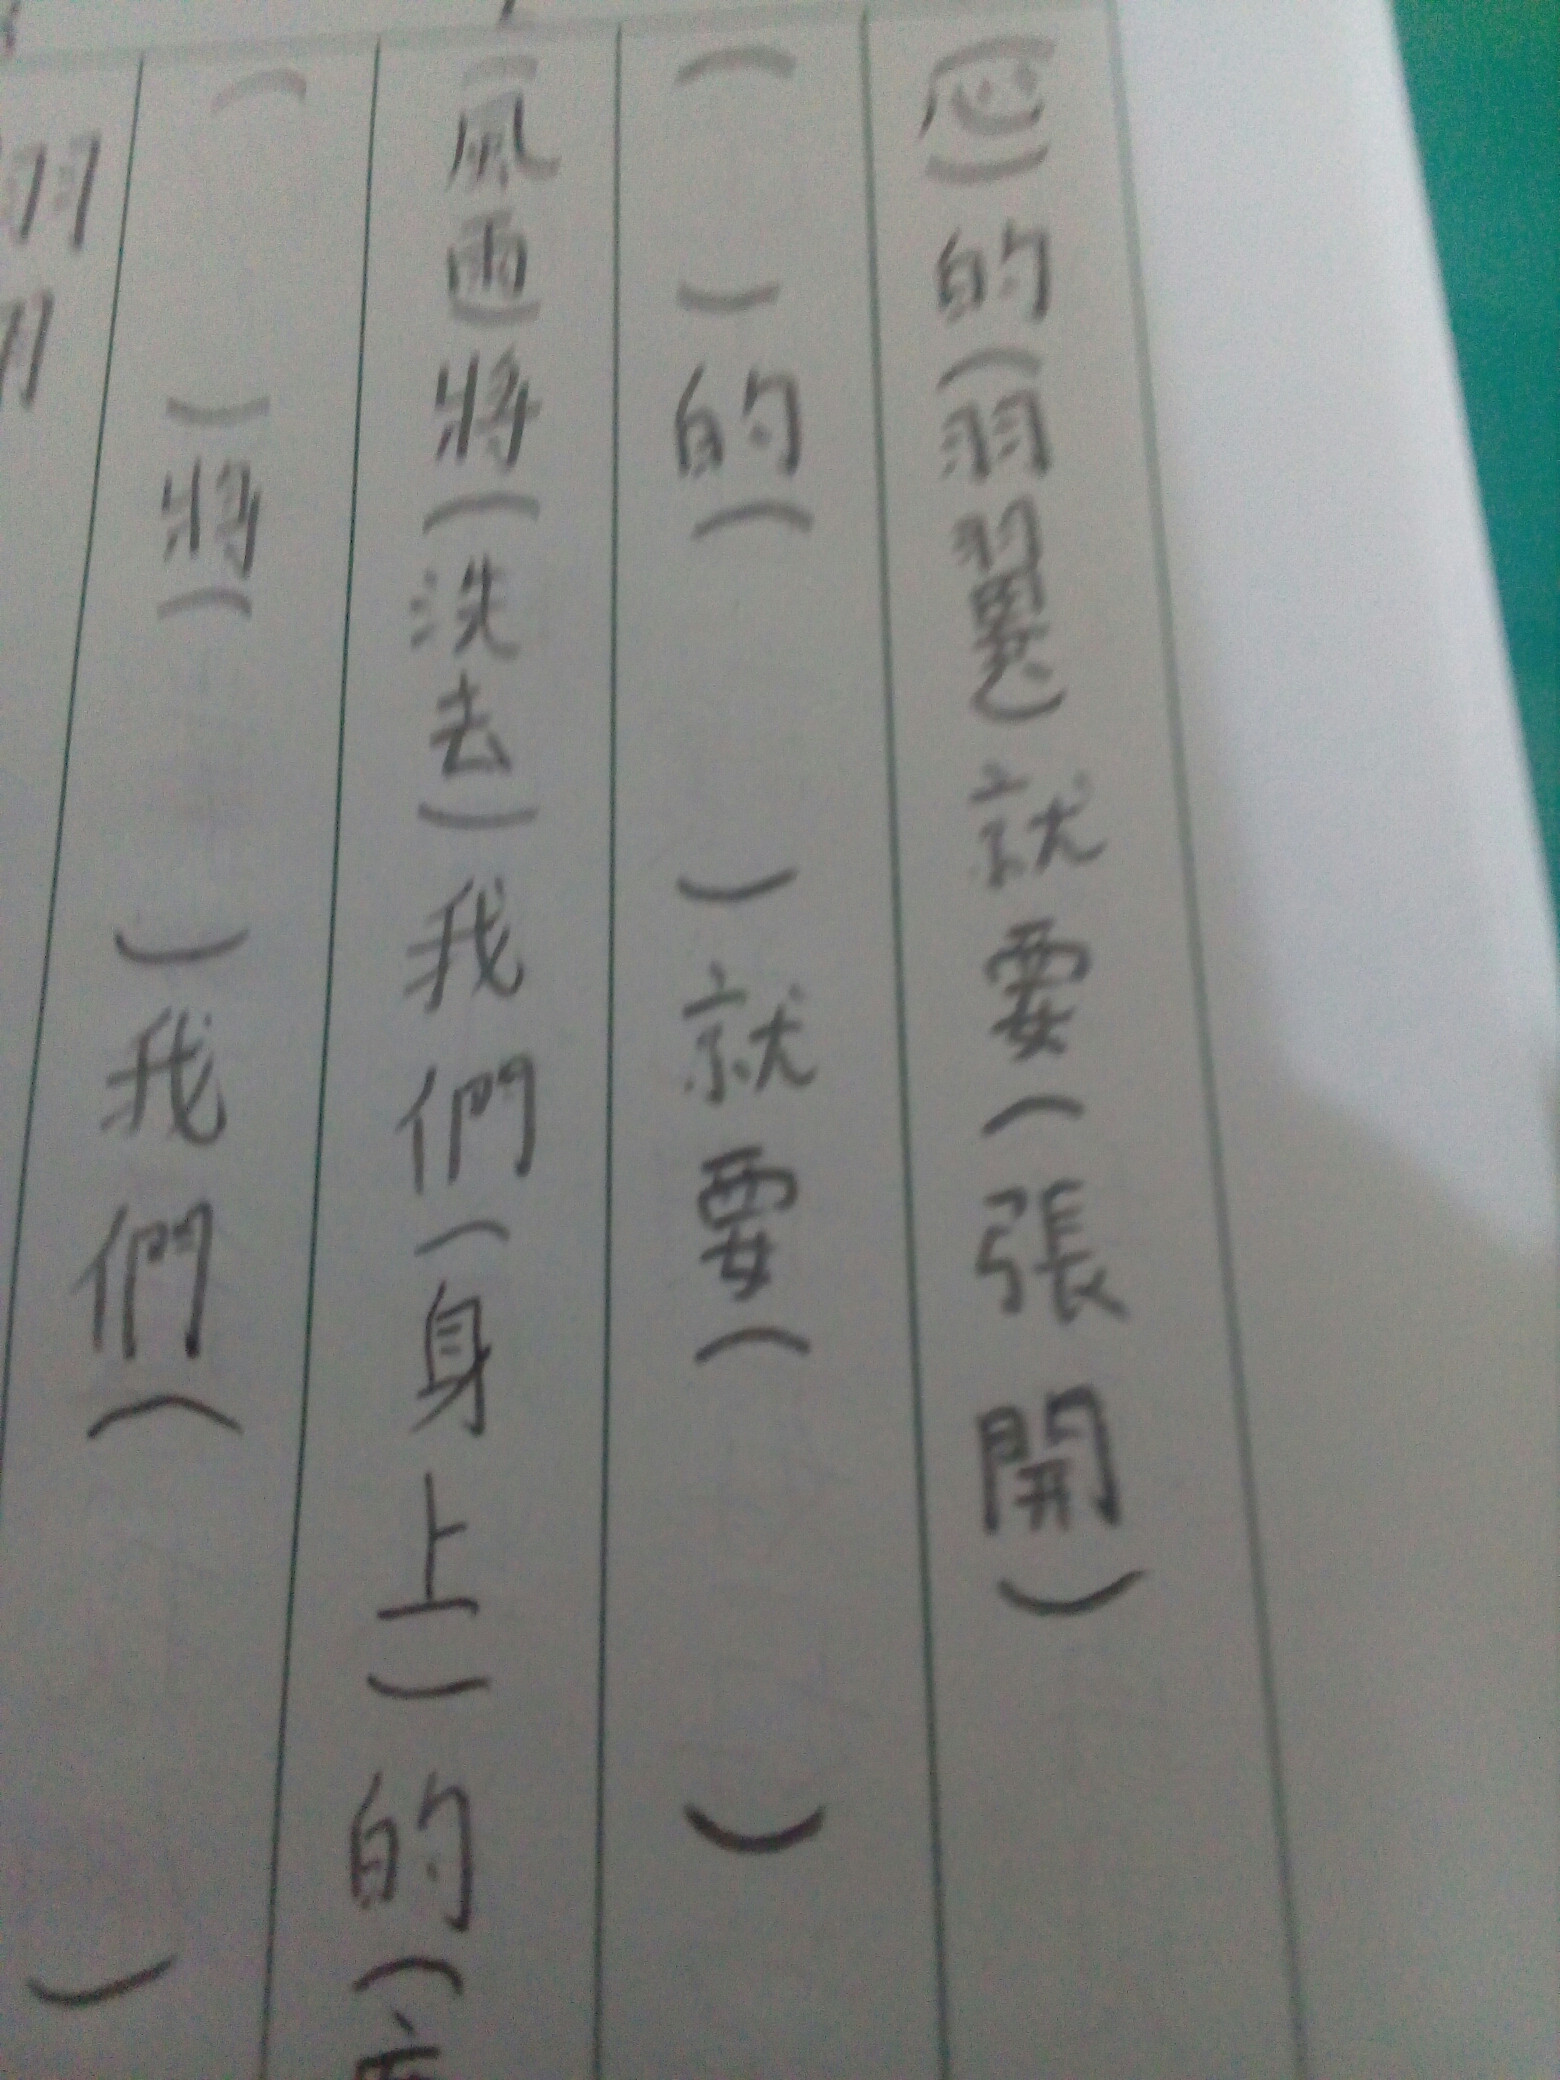 (心)的(羽翼)就要(張開)
(　　)的(　　)就要(　　)
(風雨)將(洗去)我們(身上)的(
(　　)將(　　)我們(　　)